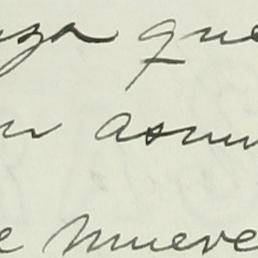 nza que
n asun
e mueve